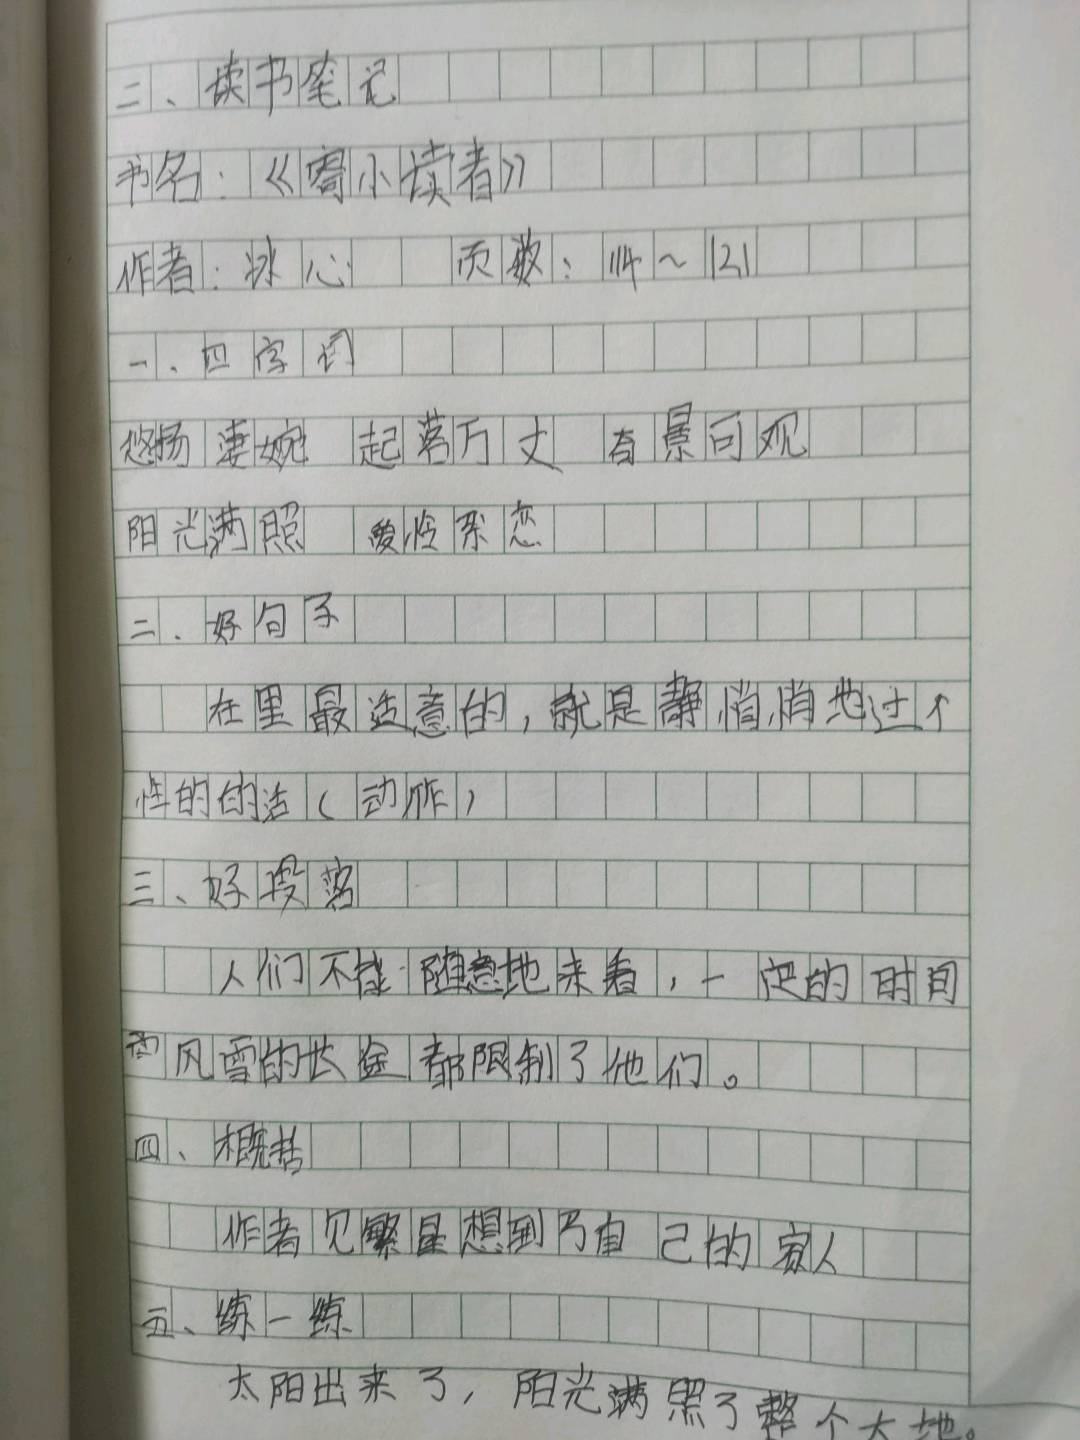 二、读书笔记
书名：《寄小读者》
作者：冰心 页数：114～121
一、四字词
悠扬凄婉 起落万丈 有景可观
阳光满照 爱怜系恋
二、好句子
在里最造意的，就是静悄悄地过个
性的的活（动作）
三、好段落
人们不能随意地来看，一 的时间
风雪的长途都限制了他们。
四、概括
作者见繁星想到了自己的家人
五、练一练
太阳出来了，阳光满照了整个大地。